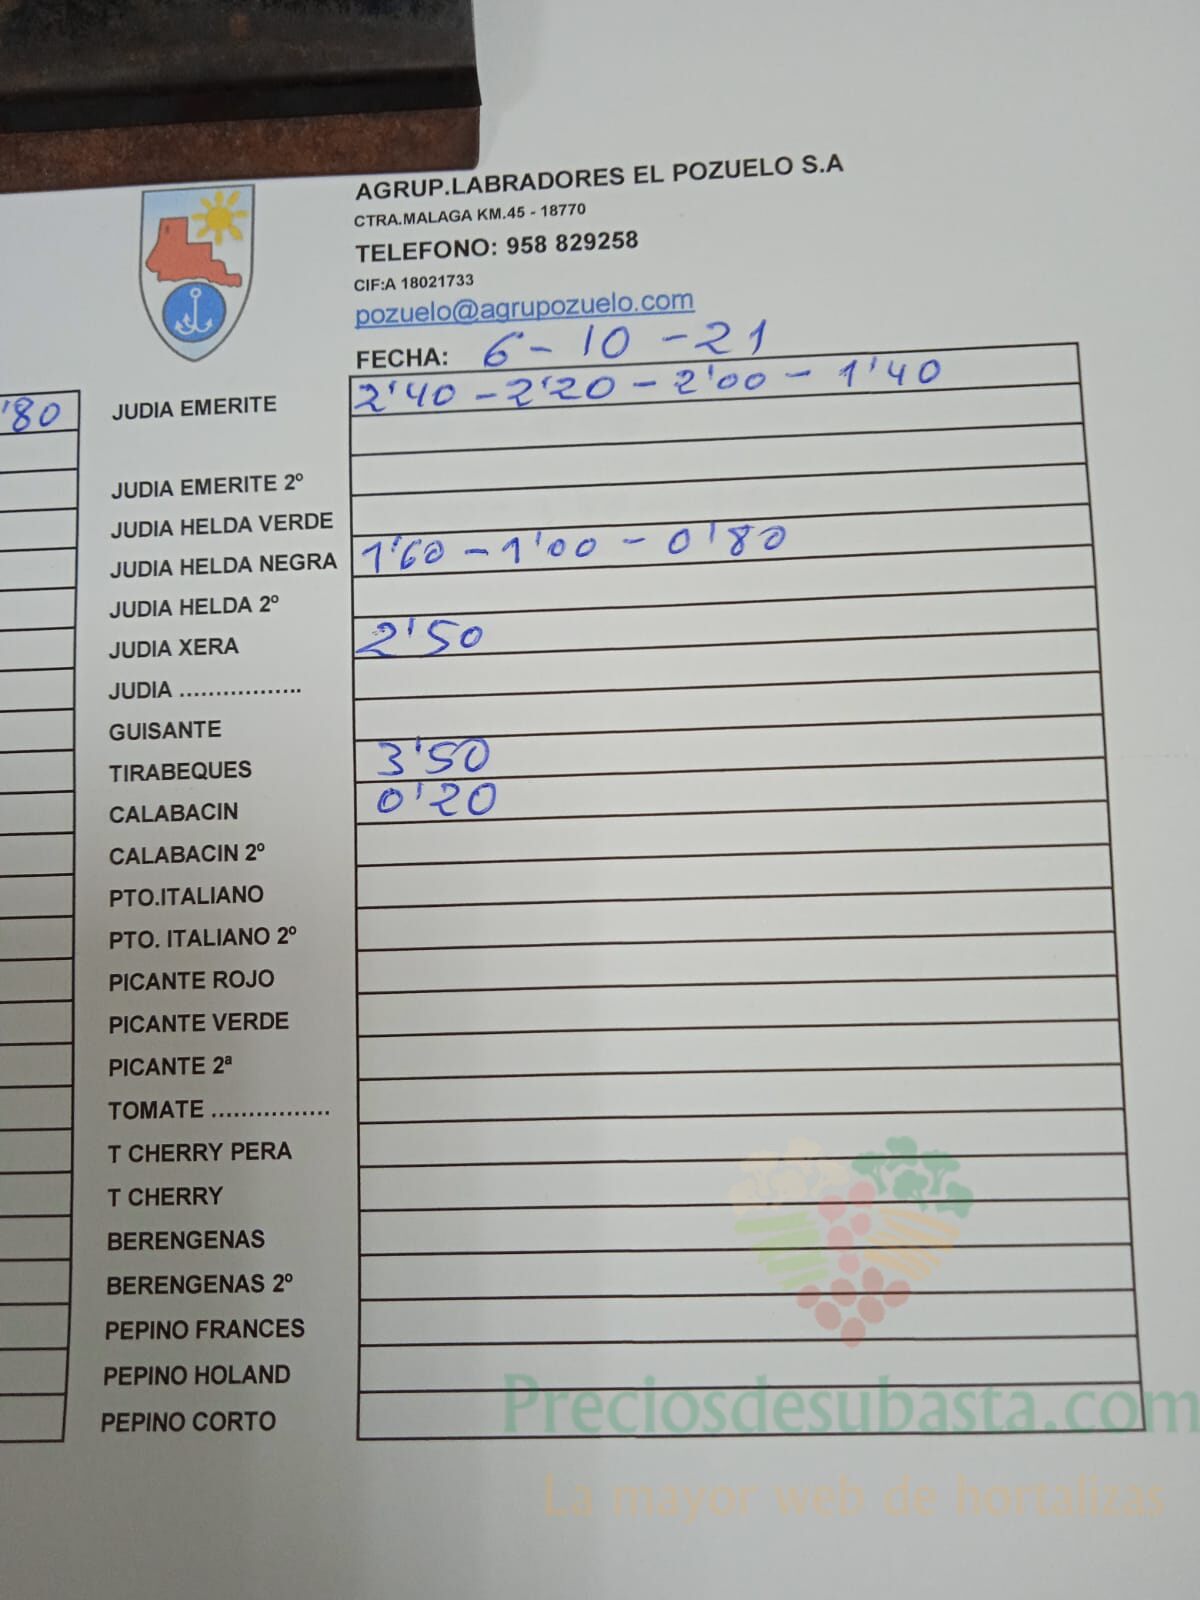 AGRUP.LABRADORES EL POZUELO S.A
CTRA.MALAGA KM.45 - 18770
TELEFONO: 958 829258
CIF:A 18021733
pozuelo@agrupozuelo.com
FECHA: 6 - 10 - 21
'80
JUDIA EMERITE 2'40 - 2'20 - 2'00 - 1'40
JUDIA EMERITE 2º
JUDIA HELDA VERDE
JUDIA HELDA NEGRA 1'60 - 1'00 - 0'80
JUDIA HELDA 2º
JUDIA XERA 2'50
JUDIA .................
GUISANTE
TIRABEQUES 3'50
CALABACIN 0'20
CALABACIN 2º
PTO.ITALIANO
PTO. ITALIANO 2º
PICANTE ROJO
PICANTE VERDE
PICANTE 2ª
TOMATE ................
T CHERRY PERA
T CHERRY
BERENGENAS
BERENGENAS 2º
PEPINO FRANCES
PEPINO HOLAND
PEPINO CORTO
Preciosdesubasta.com
La mayor web de hortalizas